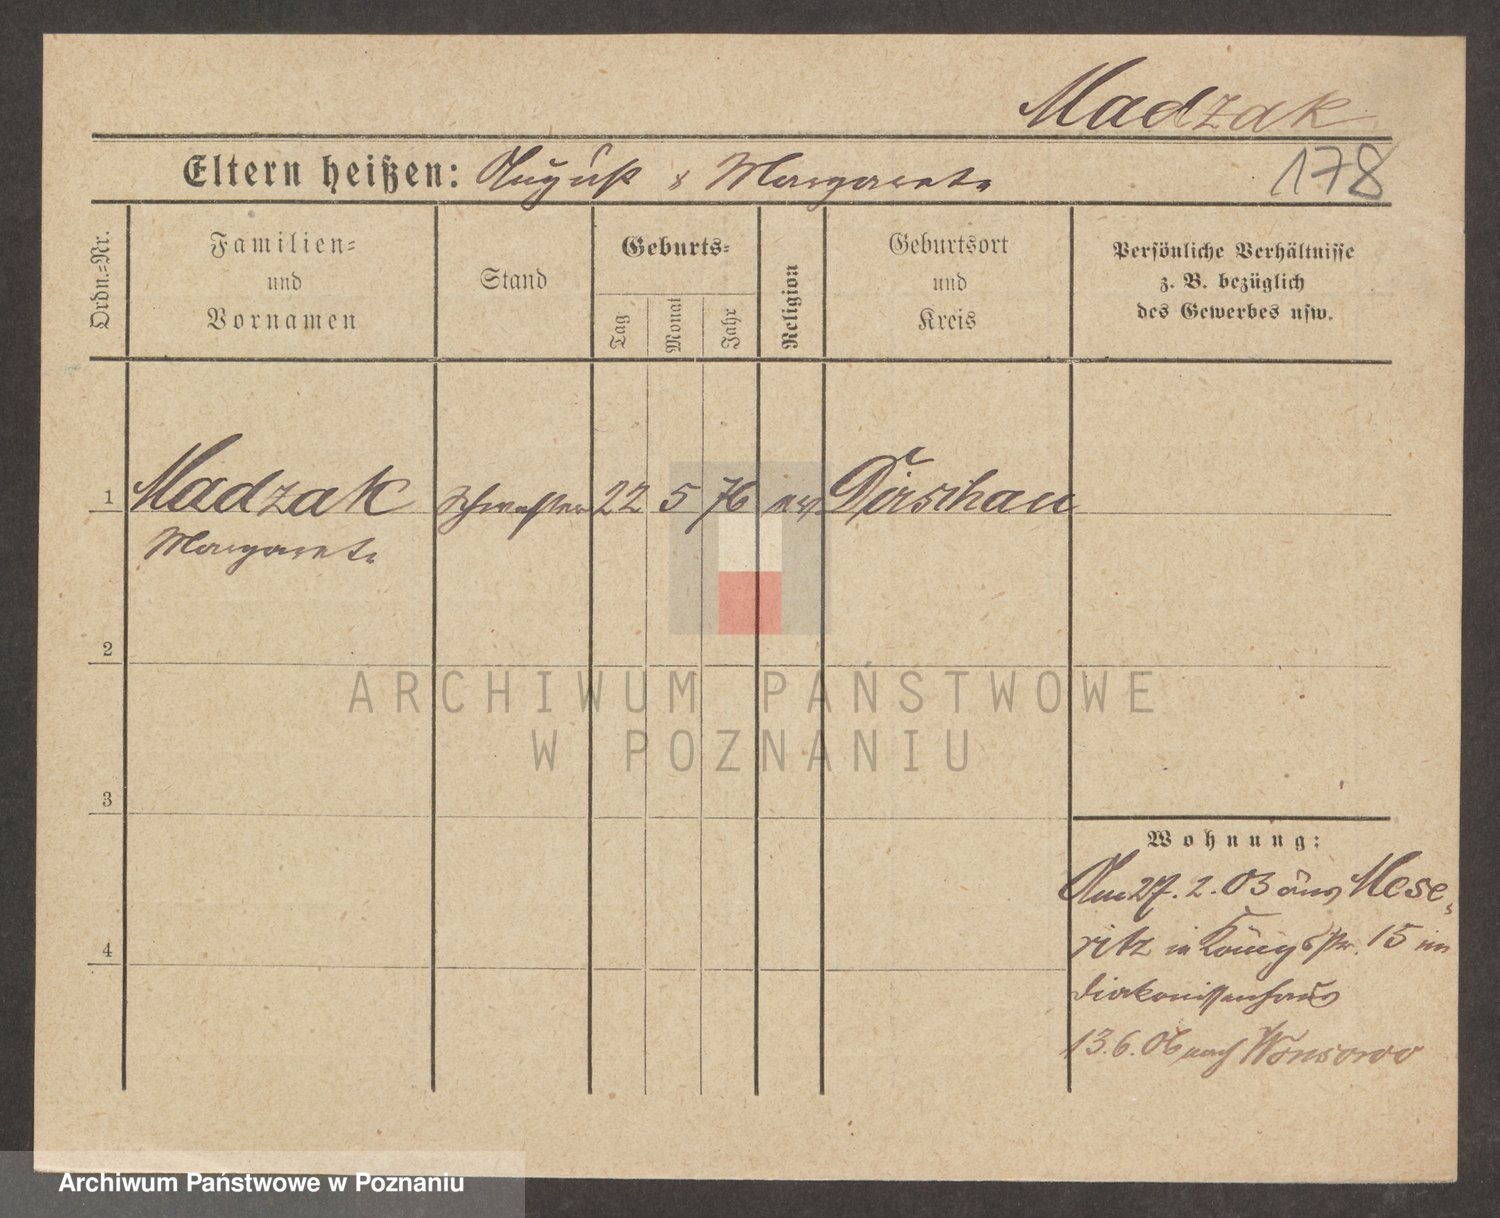 Madzak
178
Eltern heißen: August & Margarete
Ordn.=Nr.
Familien=
und
Vornamen
Stand
Geburts=
Tag
Monat
Jahr
Religion
Geburtsort
und
Kreis
Persönliche Verhältnisse
z. B. bezüglich
des Gewerbes usw.
1 Madzak Schwester 22 5 76 ev Dirschau
Margarete
2
ARCHIWUM PAŃSTWOWE
W POZNANIU
3
Wohnung:
Am 27. 2. 03 aus Mese,
ritz in Königstr. 15 im
4
Diakonissenhaus
13.6.06 nach Wonsowo
Archiwum Państwowe w Poznaniu